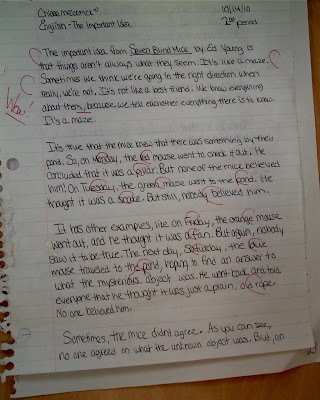 Chloee McCormick 10/14/10
English - The Important Idea 2nd period
The important idea from Seven Blind Mice by Ed Young is
that things aren't always what they seem. It's like a maze.
Sometimes we think we're going in the right direction when
really, we're not. It's not like a best friend. We know everything
about them, because we tell each other everything there is to know.
It's a maze.
Wow!
It's true that the mice knew that there was something by their
pond. So, on Monday, the red mouse went to check it out. He
concluded that it was a pillar. But none of the mice believed
him! On Tuesday, the green mouse went to the pond. He
thought it was a snake. But still, nobody believed him.
It has other examples, like on Friday, the orange mouse
went out, and he thought it was a fan. But again, nobody
saw it to be true. The next day, Saturday, the blue
mouse traveled to the pond, hoping to find an answer to
what the mysterious object was. He went back and told
everyone that he thought it was just a plain, old rope.
No one believed him.
Sometimes, the mice didn't agree. As you can see,
no one agreed on what the unknown object was. But, on